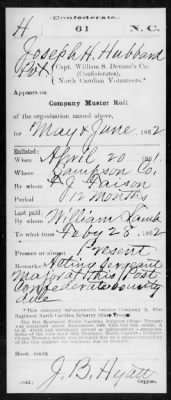 Confederate.
H 61 N.C.
Joseph H. Hubbard
Pvt. Capt. William S. Devane's Co.
(Confederates),
North Carolina Volunteers.*
Appears on
Company Muster Roll
of the organization named above,
for May & June, 1862
Enlisted:
When April 20, 1861.
Where Sampson Co.
By whom F. J. Faison
Period 12 months
Last paid:
By whom William Lamb
To what time Feby 28, 1862
Present or absent Present
Remarks: Acting Sergeant
Major at this Post.
Confederate bounty
due
*This company subsequently became Company A, 61st
Regiment North Carolina Infantry (State Troops).
The 61st Regiment North Carolina Infantry (State Troops)
Book mark:
(642) J. B. Hyatt
Copyist.